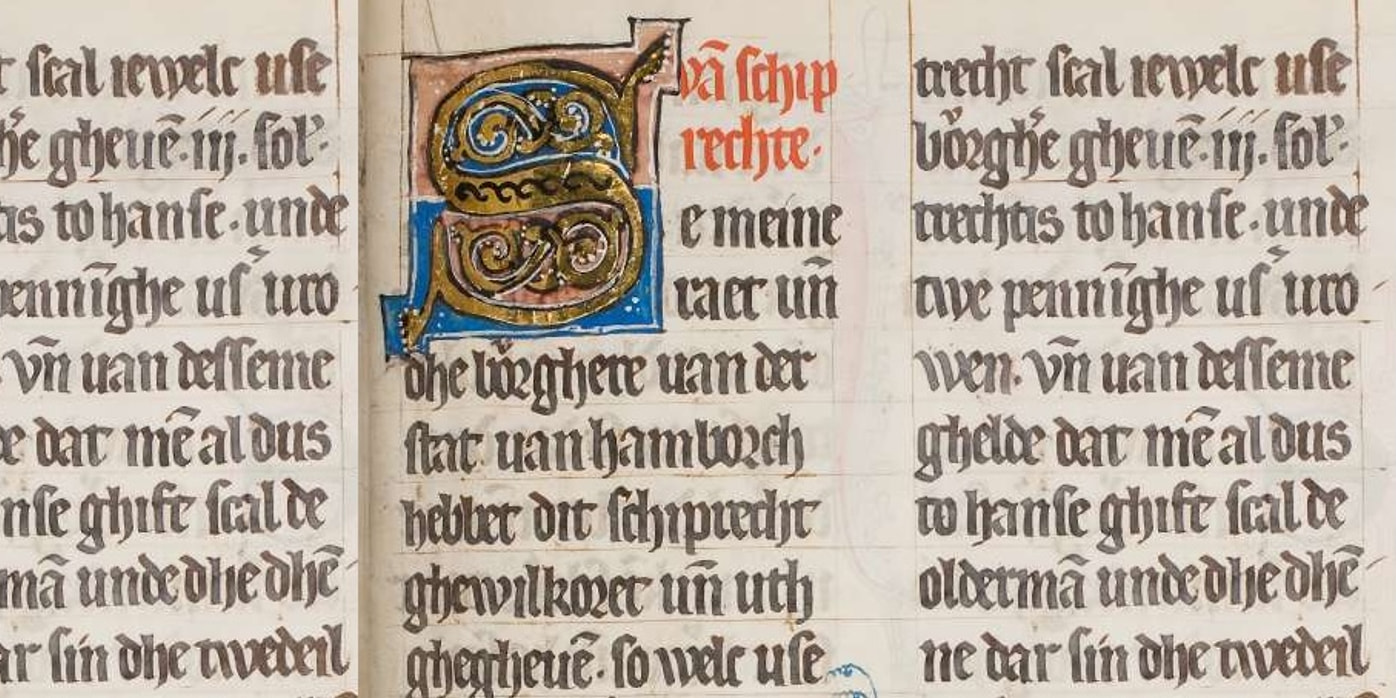 t ſcal iewelc uſe
h'e gheuē·iij·ſol'·
tis to hanſe·unde
pennīghe uſ' uro
vn̄ uan deſſeme
de dat mē al dus
nſe ghift ſcal de
mā unde dhe dhē
ar ſin dhe twedeil
vā ſchip
rechte·
Se meine
raet un̄
dhe bo̊rghere uan der
ſtat uan hamborch
hebbet dit ſchiprecht
ghewilkoret un̄ uth
ghegheuē·ſo welc uſe
trecht ſcal iewelc uſe
bo̊rgh'e gheuē·iij·ſol'·
trechtis to hanſe·unde
twe pennīghe uſ' uro
wen·vn̄ uan deſſeme
ghelde dat mē al dus
to hanſe ghift ſcal de
oldermā unde dhe dhē
ne dar ſin dhe twedeil